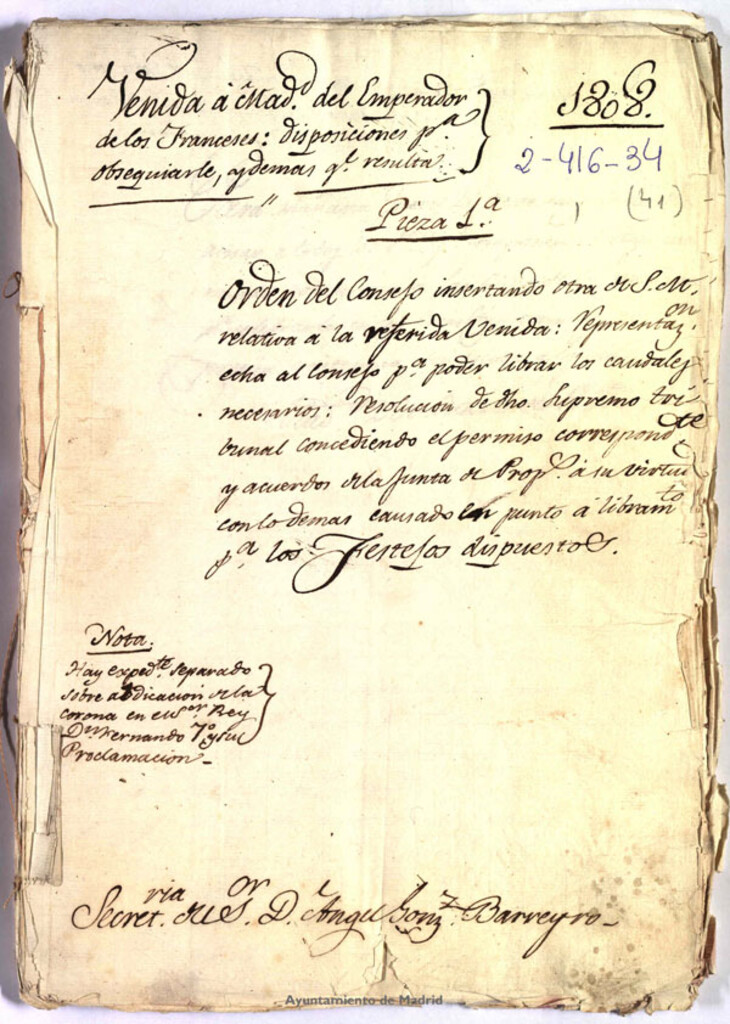 Venida á Mad.d del Emperador
de los Franceses: disposiciones p.a
obsequiarle, y demas q.e resulta.
1808.
2-416-34
(41)
Pieza 1.a
Orden del Consejo insertando otra de S.M.
relativa á la referida Venida: Representaz.on
echa al Consejo p.a poder librar los caudales
necesarios: Resolucion de dho. Supremo tri
bunal concediendo el permiso correspond.te
y acuerdos de la Junta de Prop.s á su virtud
con lo demas causado en punto á libram.to
p.a los Festejos dispuestos.
Nota.
Hay exped.te separado
sobre abdicacion de la
corona en el S.or Rey
D.n Fernando 7.o y su
Proclamacion
Secret.ria del S.or D. Angel Gonz.z Barreyro
Ayuntamiento de Madrid